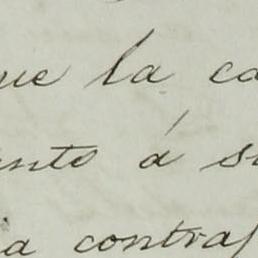 ue la ca
nto á su
ia contra